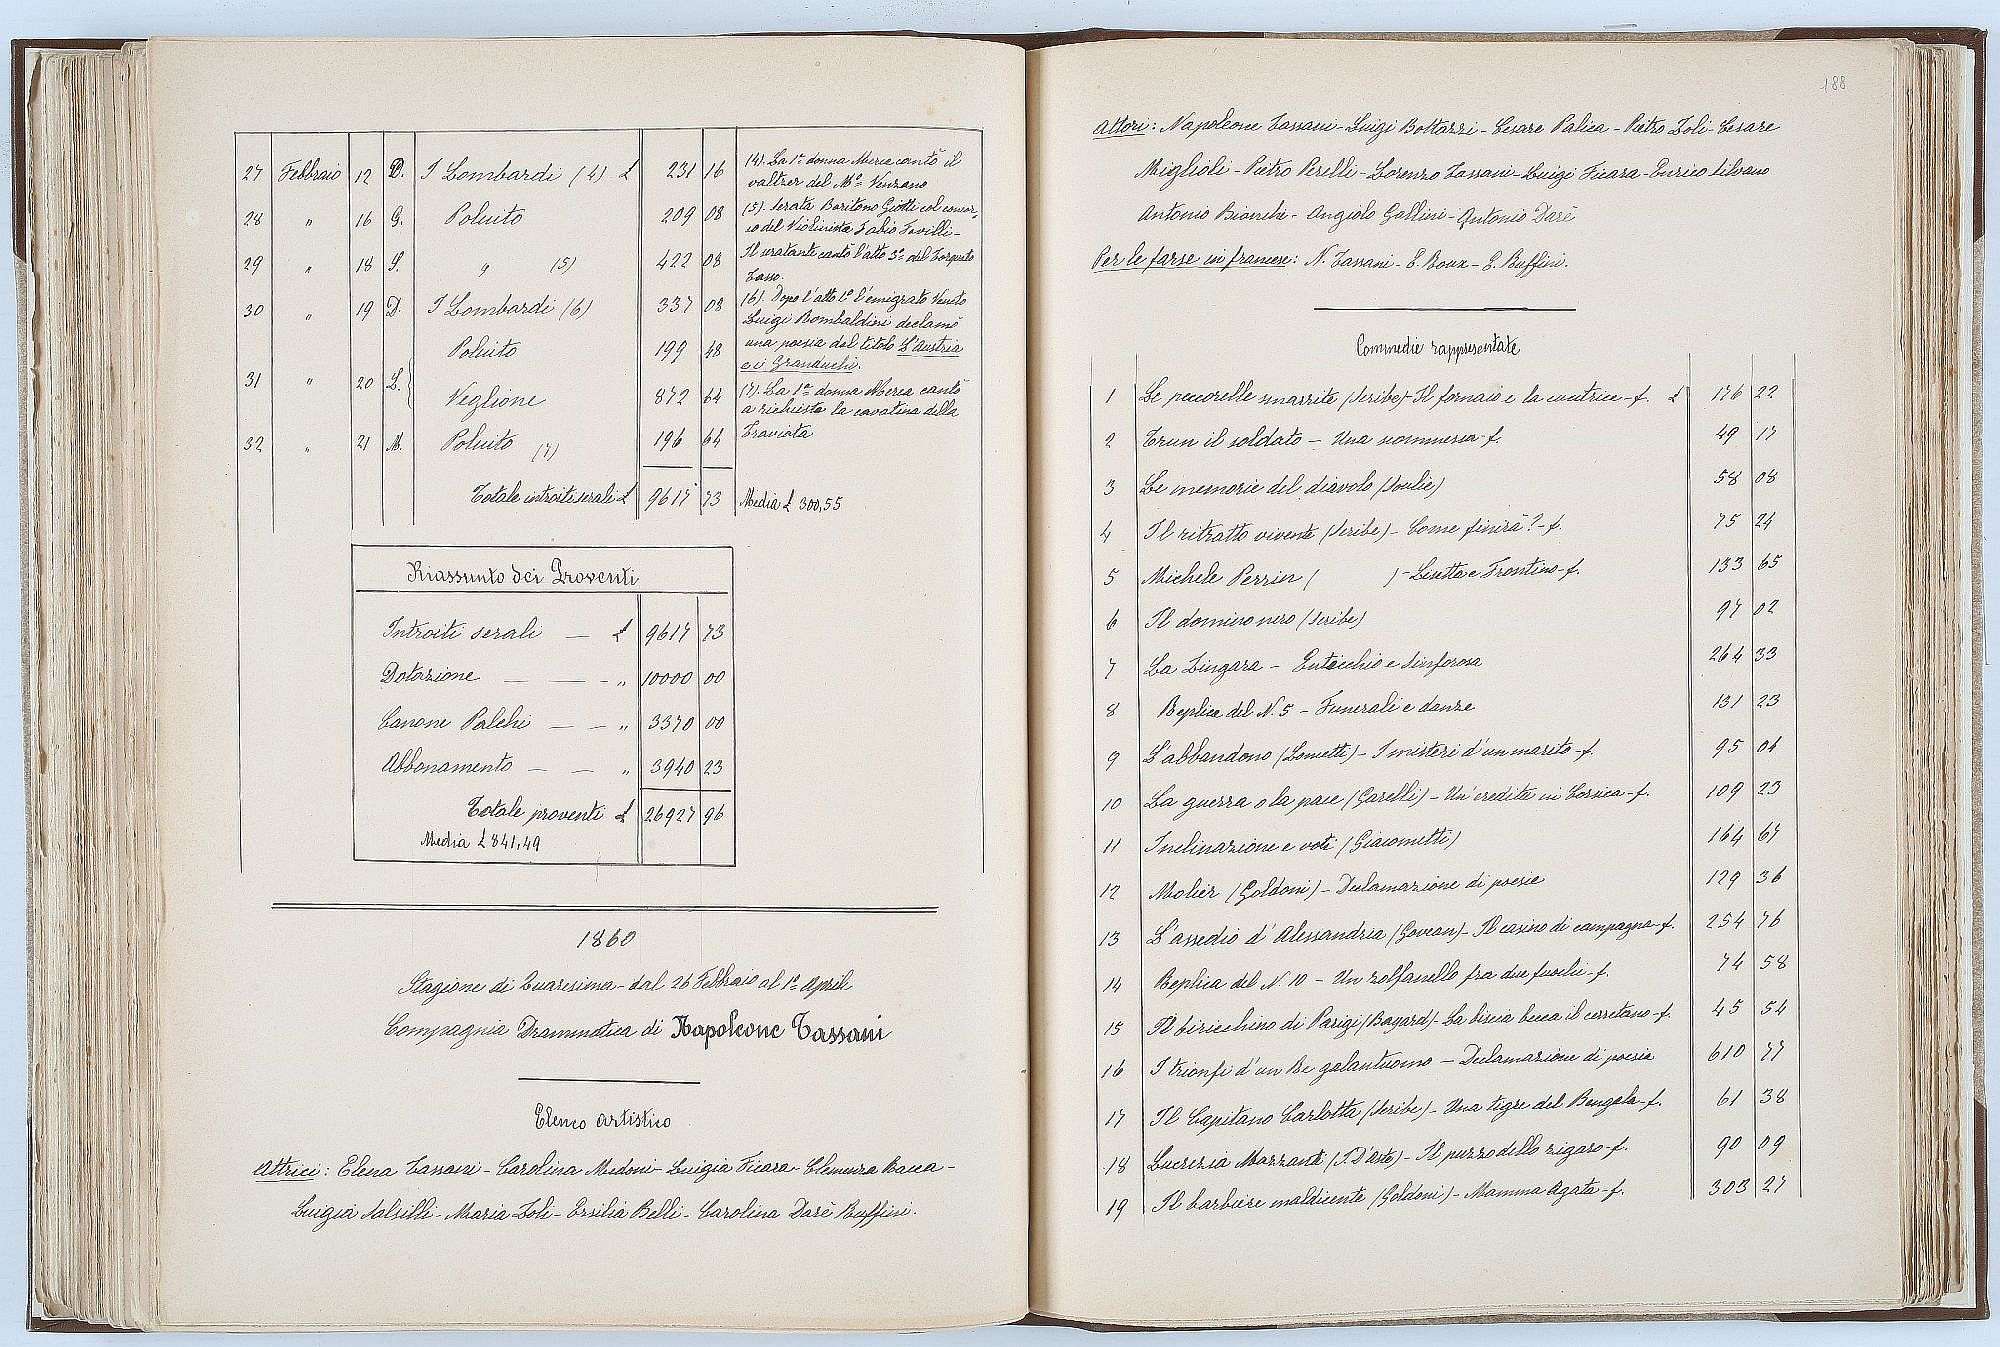 27 Febbraio 12 D. I Lombardi (4) £ 231 16
28 " 16 G. Poliuto 209 08
29 " 18 S. " (5) 422 08
30 " 19 D. I Lombardi (6) 337 08
Poliuto 199 48
31 " 20 L.
Veglione 872 64
32 " 21 M. Poliuto (7) 196 64
Totale introiti serali £ 9617 73 Media £ 300,55
(4). La 1ª donna Merea cantò il
valtzer del Mº Venzano
(5). Serata Baritono Giotti col concor-
so del Violinista Fabio Favilli-
Il seratante cantò l'atto 3º del Torquato
Tasso.
(6). Dopo l'atto 1º l'emigrato Veneto
Luigi Bombaldini declamò
una poesia dal titolo L'Austria
e i Granduchi.
(7). La 1ª donna Merea cantò
a richiesta la cavatina della
Traviata
Riassunto dei Proventi
Introiti serali — £ 9617 73
Dotazione — — - " 10000 00
Canone Palchi — - " 3370 00
Abbonamento — - " 3940 23
Totale proventi £ 26927 96
Media £ 841,49
1860
Stagione di Quaresima - dal 26 Febbraio al 1º Aprile
Compagnia Drammatica di Napoleone Tassani
Elenco artistico
Attrici: Elena Tassani - Carolina Medoni - Luigia Ficara - Clemenza Bacca -
Luigia Salsilli - Maria Zoli - Ersilia Belli - Carolina Darè Buffini.
188
Attori: Napoleone Tassani - Luigi Bottazzi - Cesare Palica - Pietro Zoli - Cesare
Miglioli - Pietro Perelli - Lorenzo Tassani - Luigi Ficara - Enrico Silvano
Antonio Bianchi - Angiolo Gallini - Antonio Darè
Per le farse in francese: N. Tassani - E. Roux - E. Buffini.
Commedie rappresentate
1 Le pecorelle smarrite (Scribe) - Il fornaio e la cucitrice - f. £ 176 22
2 Trun il soldato - Una scommessa - f. 49 17
3 Le memorie del diavolo (Soulie) 58 08
4 Il ritratto vivente (Scribe) - Come finirà? - f. 75 24
5 Michele Perrin ( ) - Lisetta e Frontino - f. 133 65
6 Il domino nero (Scribe) 97 02
7 La Zingara - Eutichio e Sinforosa 264 33
8 Replica del N. 5 - Funerali e danze 131 23
9 L'abbandono - I misteri d'un marito - f. 95 04
10 La guerra o la pace (Garelli) - Un'eredità in Corsica - f. 109 23
11 Inclinazione e voti (Giacometti) 164 67
12 Molier (Goldoni) - Declamazione di poesie 129 36
13 L'assedio d'Alessandria (Govean) - Il casino di campagna - f. 254 76
14 Replica del N. 10 - Un zolfanello fra due fuochi - f. 74 58
15 Il biricchino di Parigi (Bayard) - La biscia becca il cerretano - f. 45 54
16 I trionfi d'un Re galantuomo — Declamazione di poesia 610 77
17 Il Capitano Carlotta (Scribe) - Una tigre del Bengala - f. 61 38
18 Lucrezia Mazzanti (S. D'aste) - Il puzzo dello zigaro - f. 90 09
19 Il barbiere maldicente (Goldoni) - Mamma Agata - f. 303 27